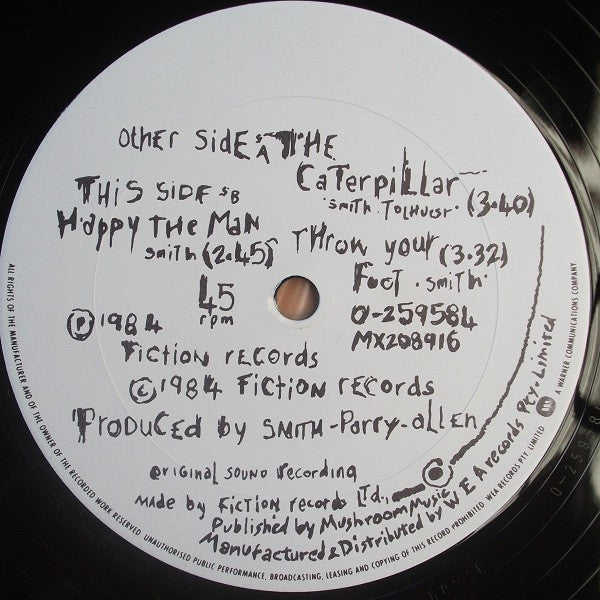 other side SA THE
Caterpillar
smith. Tolhurst. (3.40)
THIS SIDE SB
Happy THE Man
smith (2.45)
Throw your (3.32)
Foot . smith.
45
rpm
0-259584
MX208916
Ⓟ 1984
Fiction records
© 1984 Fiction records
Produced by SMITH-Parry-allen
original sound recording
made by Fiction records Ltd.,
Published by Mushroom Music
Manufactured & Distributed by W E A records Pty. Limited
ALL RIGHTS OF THE MANUFACTURER AND OF THE OWNER OF THE RECORDED WORK RESERVED. UNAUTHORISED PUBLIC PERFORMANCE, BROADCASTING, LEASING AND COPYING OF THIS RECORD PROHIBITED. WEA RECORDS PTY. LIMITED A WARNER COMMUNICATIONS COMPANY.